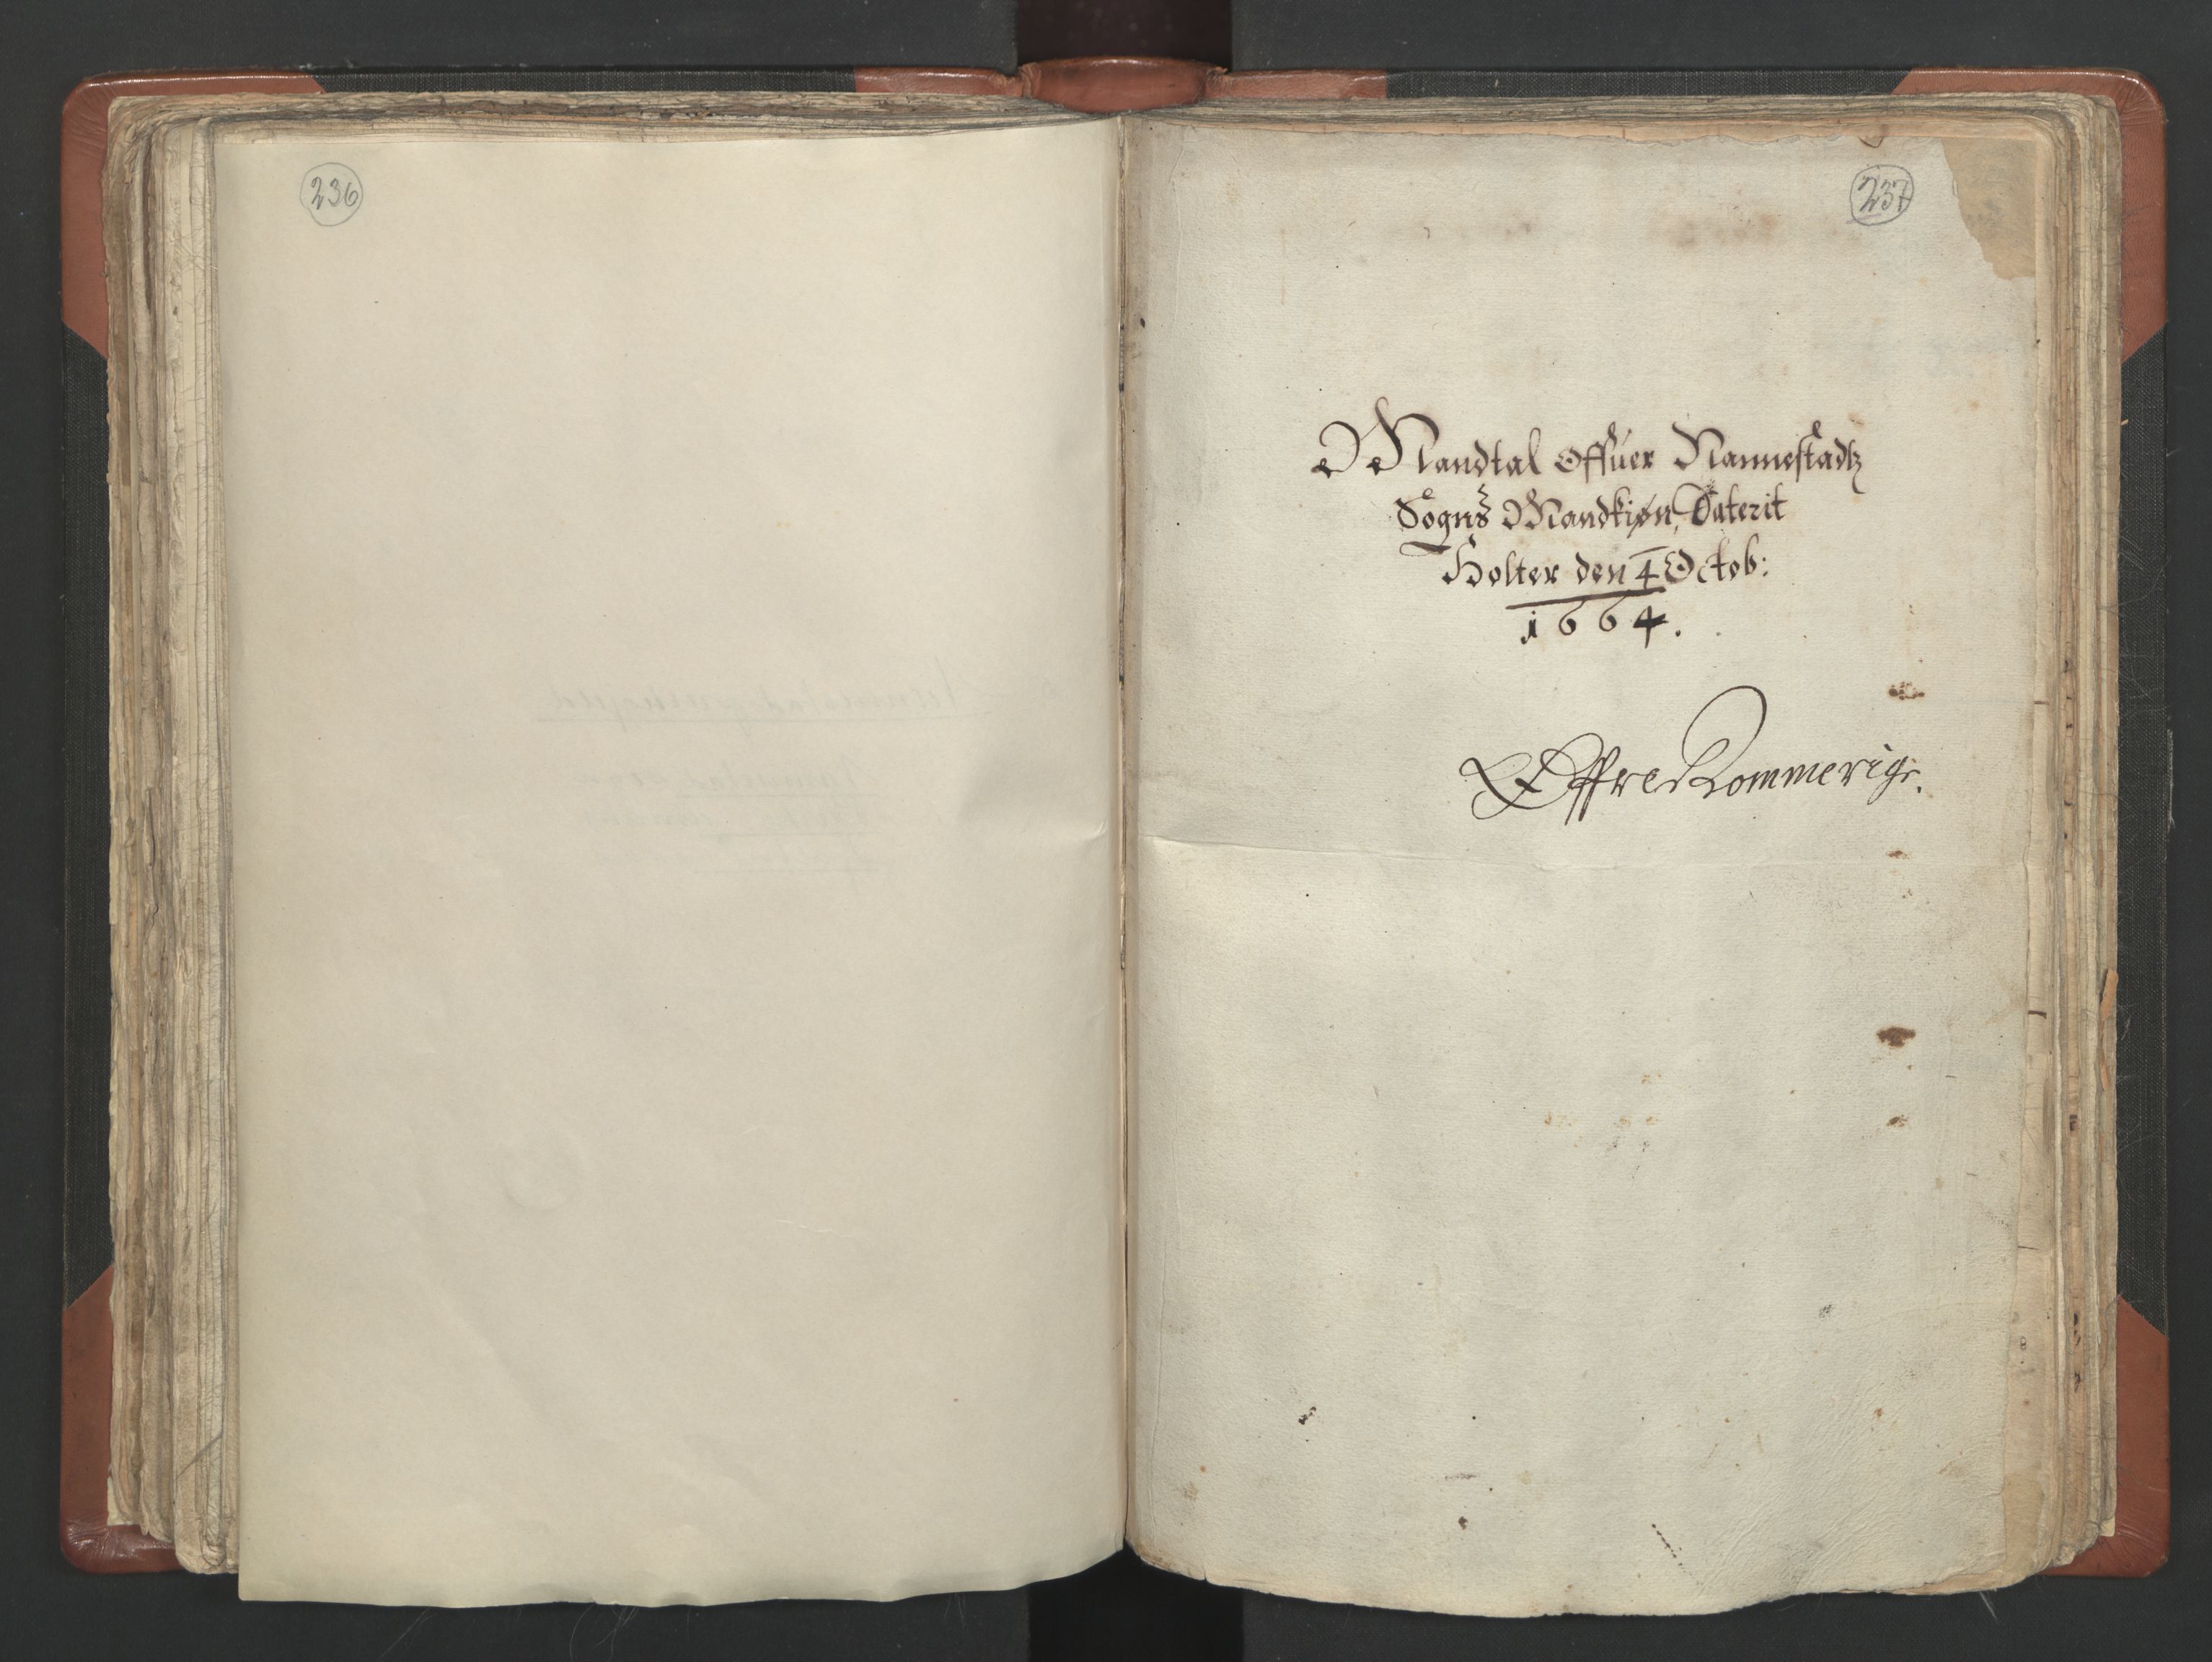 236
237
Mandtal offuer Nannestadtz
Sogns Mandkiøn, Daterit
Holter den 4 Octob:
1664.
Øffre Rommerige.